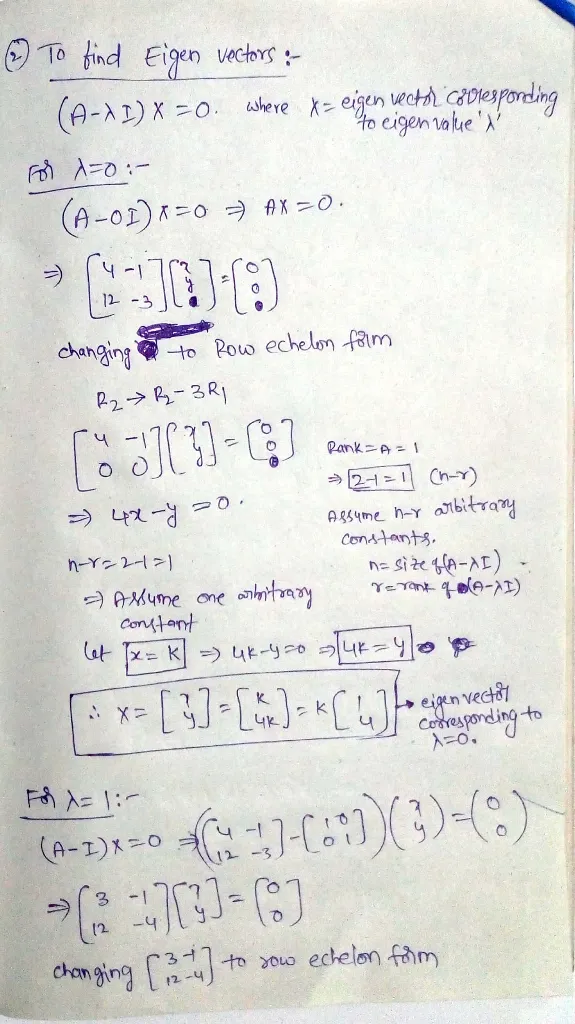 ② To find Eigen vectors :-
(A-λI) X = 0. where X = eigen vector corresponding to eigen value 'λ'
For λ=0 :-
(A-0I) X = 0 ⇒ AX = 0.
⇒ [4 -1; 12 -3] [x; y] = [0; 0]
changing to Row echelon form
R2 → R2 - 3R1
[4 -1; 0 0] [x; y] = [0; 0]
⇒ 4x - y = 0.
n-r = 2-1 = 1
⇒ Assume one arbitrary
constant
Rank = A = 1
⇒ 2-1 = 1 (n-r)
Assume n-r arbitrary
constants.
n = size of (A-λI)
r = rank of (A-λI)
let x = K ⇒ 4K-y=0 ⇒ 4K = y
∴ X = [x; y] = [K; 4K] = K [1; 4] → eigen vector
corresponding to
λ=0.
For λ = 1 :-
(A-I) X = 0 ⇒ ([4 -1; 12 -3] - [1 0; 0 1]) (x; y) = (0; 0)
⇒ [3 -1; 12 -4] [x; y] = [0; 0]
changing [3 -1; 12 -4] to row echelon form